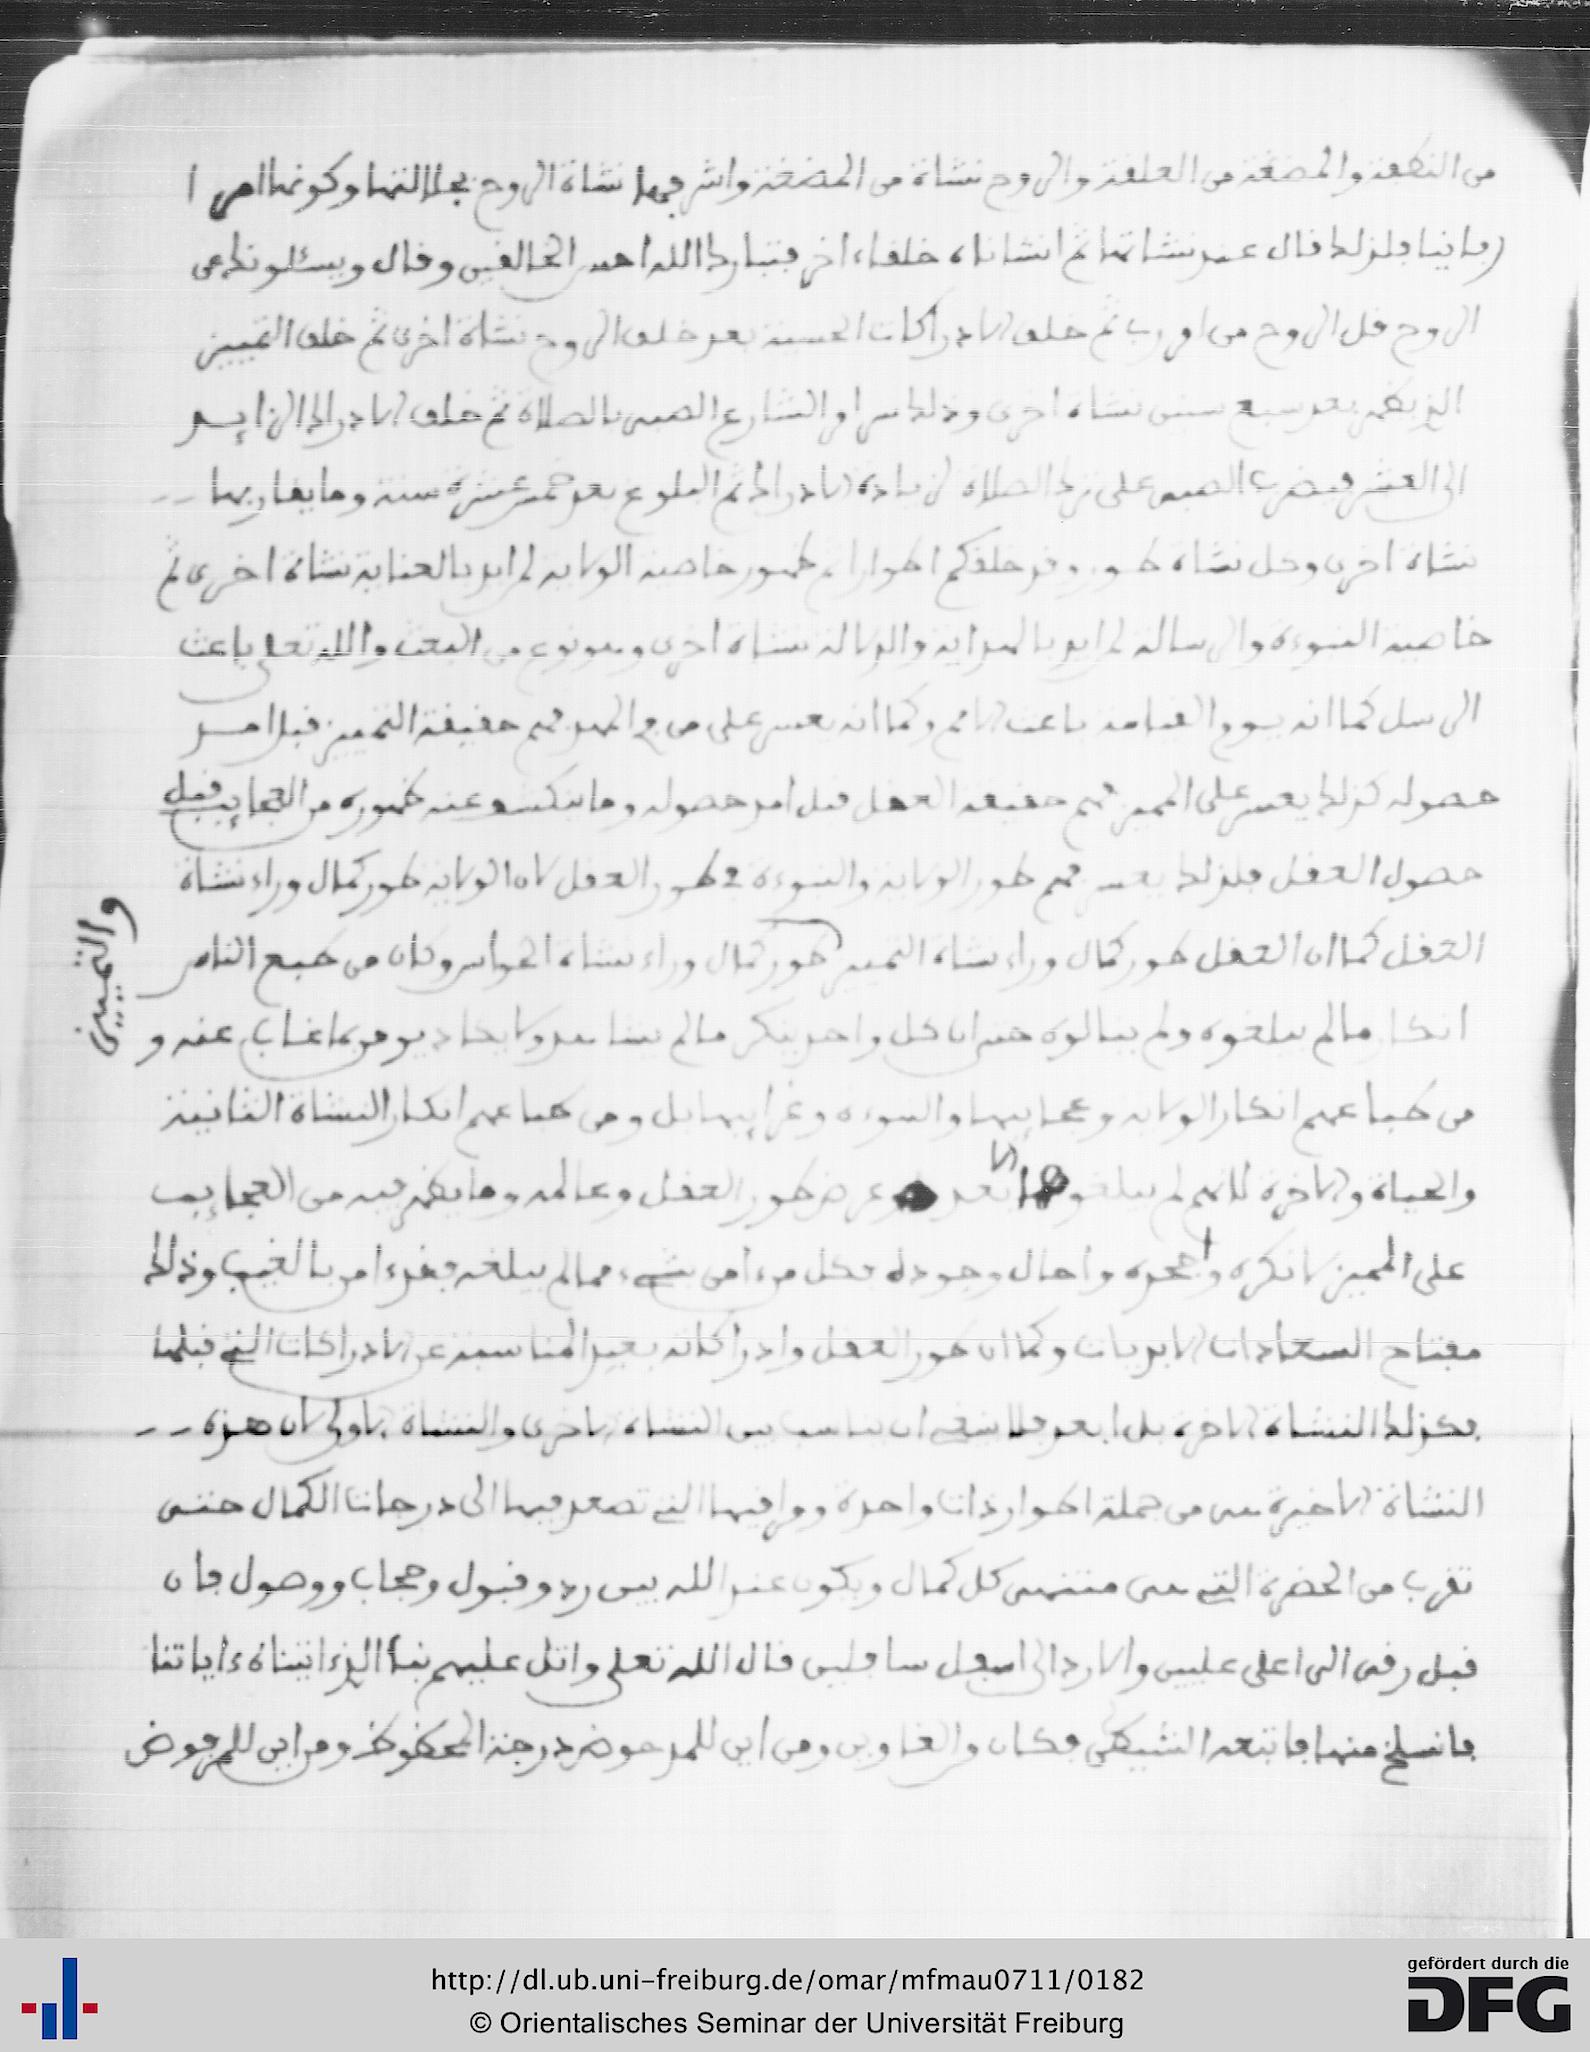 من النطفة والمضغة من العلقة والروح نشاة من المضغة واشرفها نشاة الروح بجلالتها وكونها امرا
ربانيا فلذلك قال عند نشاتها ثم انشاناه خلقا ءاخر فتبارك الله احسن الخالقين وقال ويسئلونك عن
الروح قل الروح من امر رب ثم خلق الادراكات الحسية بعد خلق الروح نشاة اخرى ثم خلق التمييز
الذي يظهر بعد سبع سنين نشاة اخرى وذلك امر الشارع الصبي بالصلاة ثم خلق الادراك الزايد
الى العشر فيضرب الصبي على ترك الصلاة لزيادة الادراك ثم البلوغ بعد خمس عشرة سنة وما يقاربها
نشاة اخرى وكل نشاة طور وقد خلقكم اطوارا ثم ظهور خاصية الولاية لمن ايد بالعناية نشاة اخرى ثم
خاصية النبوءة والرسالة لمن ايد بالهداية والدلالة نشاة اخرى وهو نوع من البعث والله تعلى باعث
الرسل كما انه يوم القيامة باعث الامم وكما انه يعسر على من في المهد فهم حقيقة التمييز قبل امد
حصوله كذلك يعسر على المميز فهم حقيقة العقل قبل امد حصوله وما ينكشف عنه ظهوره من العجايب قبل
حصول العقل فلذلك يعسر فهم طور الولاية والنبوءة في طور العقل لان الولاية طور كمال وراء نشاة
العقل كما ان العقل طور كمال وراء نشاة التمييز طور كمال وراء نشاة الحواس وكان من طبع الناس
والتمييز
انكار ما لم يبلغوه ولم ينالوه حتى ان كل واحد ينكر ما لم يشاهد ولا يكاد يومن بما غاب عنه و
من طباعهم انكار الولاية وعجايبها والنبوءة وغرايبها بل ومن طباعهم انكار النشاة الثانية
والحياة والاخرة لانهم لم يبلغوها بعد عرض طور العقل وعالمه وما يظهر فيه من العجايب
على المميز لانكره وجحده واحال وجوده فكل من ءامن بشيء مما لم يبلغه فقد ءامن بالغيب وذلك
مفتاح السعادات الابديات وكما ان طور العقل وادراكاته بعيد المناسبة عن الادراكات التي قبلها
فكذلك النشاة الاخرة بل ابعد فلا ينبغي ان يناسب بين النشاة الاخرى والنشاة الاولى لان هذه
النشاة الاخيرة هي من جملة اطوار ذات واحدة ومراقيها التي تصعد فيها الى درجات الكمال حتى
تقرب من الحضرة التي هي منتهى كل كمال ويكون عند الله بين رد وقبول وحجاب ووصول فان
قبل رقى الى اعلى عليين والا رد الى اسفل سافلين قال الله تعلى واتل عليهم نبأ الذي ءاتيناه ءاياتنا
فانسلخ منها فاتبعه الشيطن فكان من الغاوين ومن اين للمدحوض درجة المحظوظ ومن اين للمرفوض
http://dl.ub.uni-freiburg.de/omar/mfmau0711/0182
© Orientalisches Seminar der Universität Freiburg
gefördert durch die
DFG